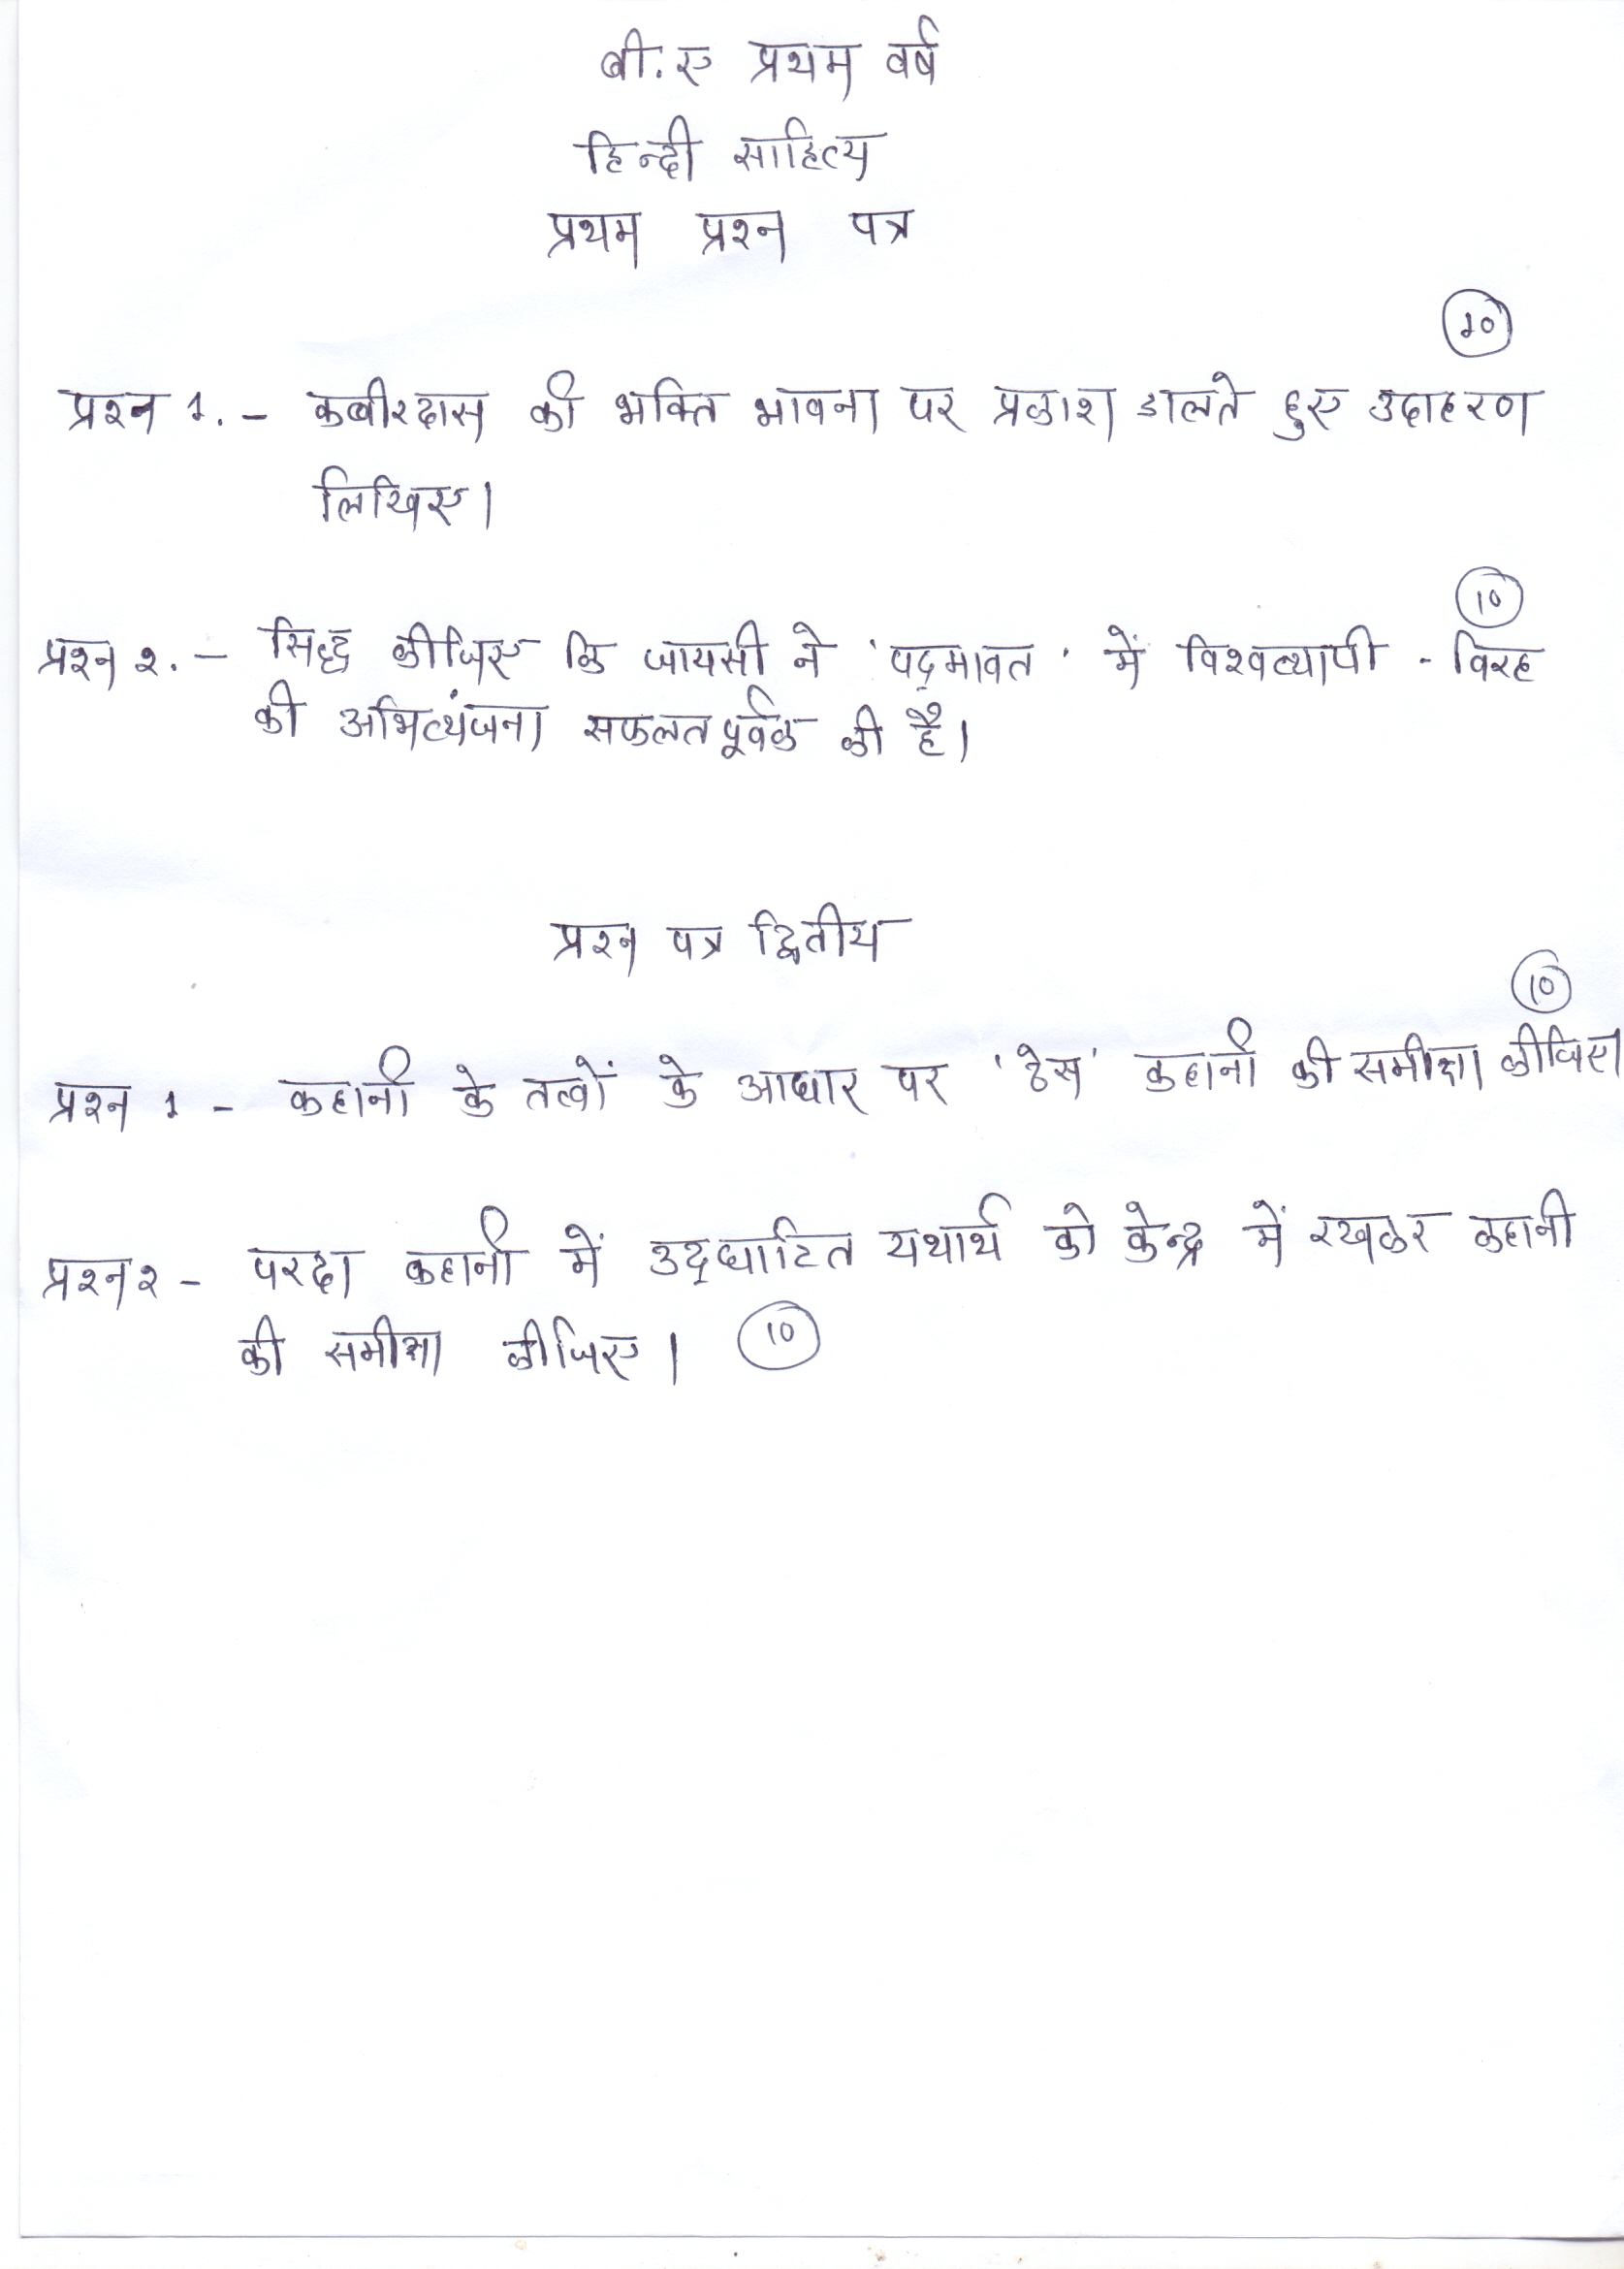 बी.ए प्रथम वर्ष
हिन्दी साहित्य
प्रथम प्रश्न पत्र
10
प्रश्न 1. - कबीरदास की भक्ति भावना पर प्रकाश डालते हुए उदाहरण
लिखिए।
10
प्रश्न २. - सिद्ध कीजिए कि जायसी ने 'पद्मावत' में विश्वव्यापी - विरह
की अभिव्यंजना सफलतपूर्वक की है।
प्रश्न पत्र द्वितीय
10
प्रश्न 1 - कहानी के तत्वों के आधार पर 'ठेस' कहानी की समीक्षा कीजिए।
प्रश्न २ - परदा कहानी में उद्घाटित यथार्थ को केन्द्र में रखकर कहानी
की समीक्षा कीजिए। 10